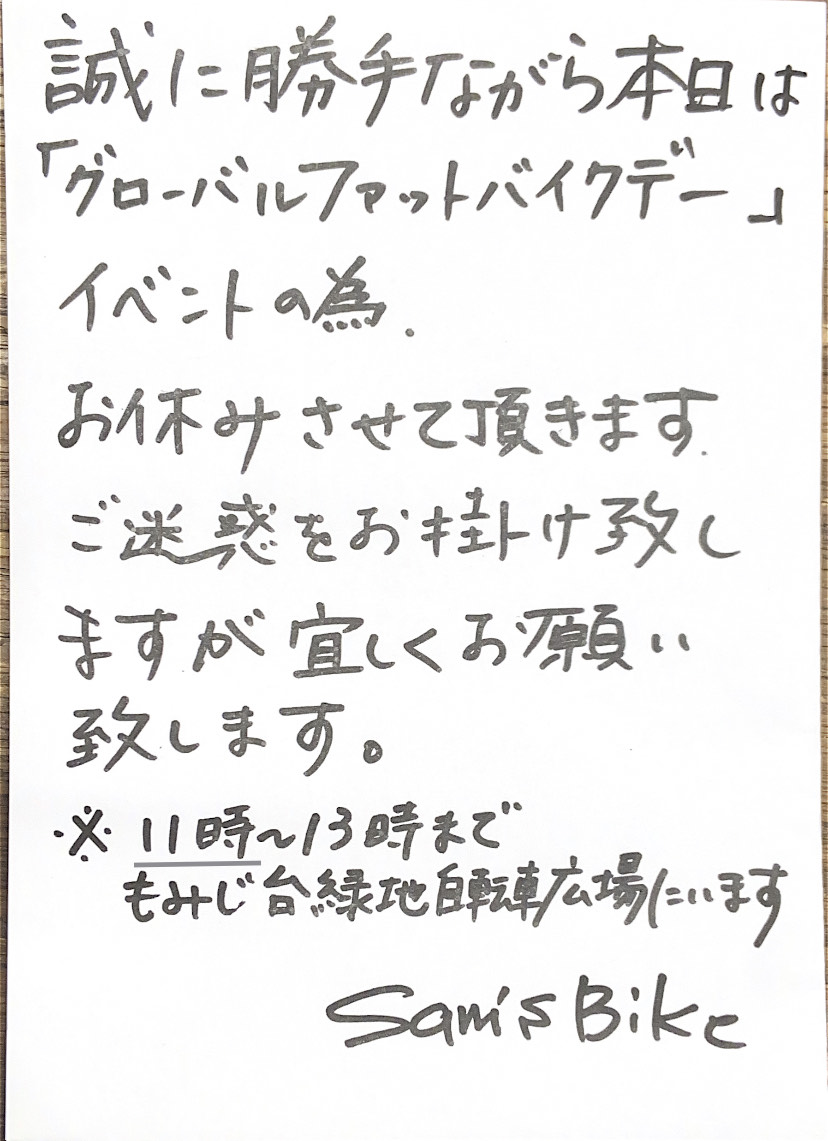 誠に勝手ながら本日は
「グローバルファットバイクデー」
イベントの為.
お休みさせて頂きます.
ご迷惑をお掛け致し
ますが宜しくお願い
致します。
※ 11時〜13時まで
もみじ台緑地自転車広場にいます
Sam's Bike